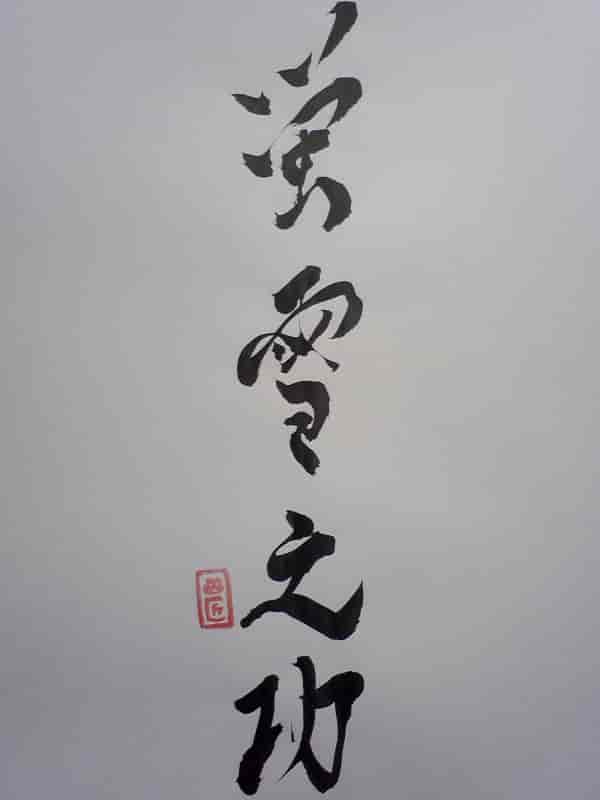 蛍雪之功